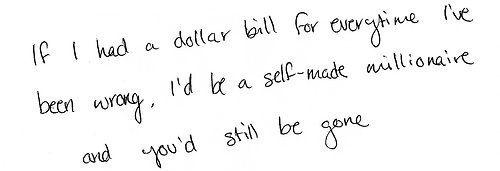 If I had a dollar bill for everytime I've
been wrong, I'd be a self-made millionaire
and you'd still be gone